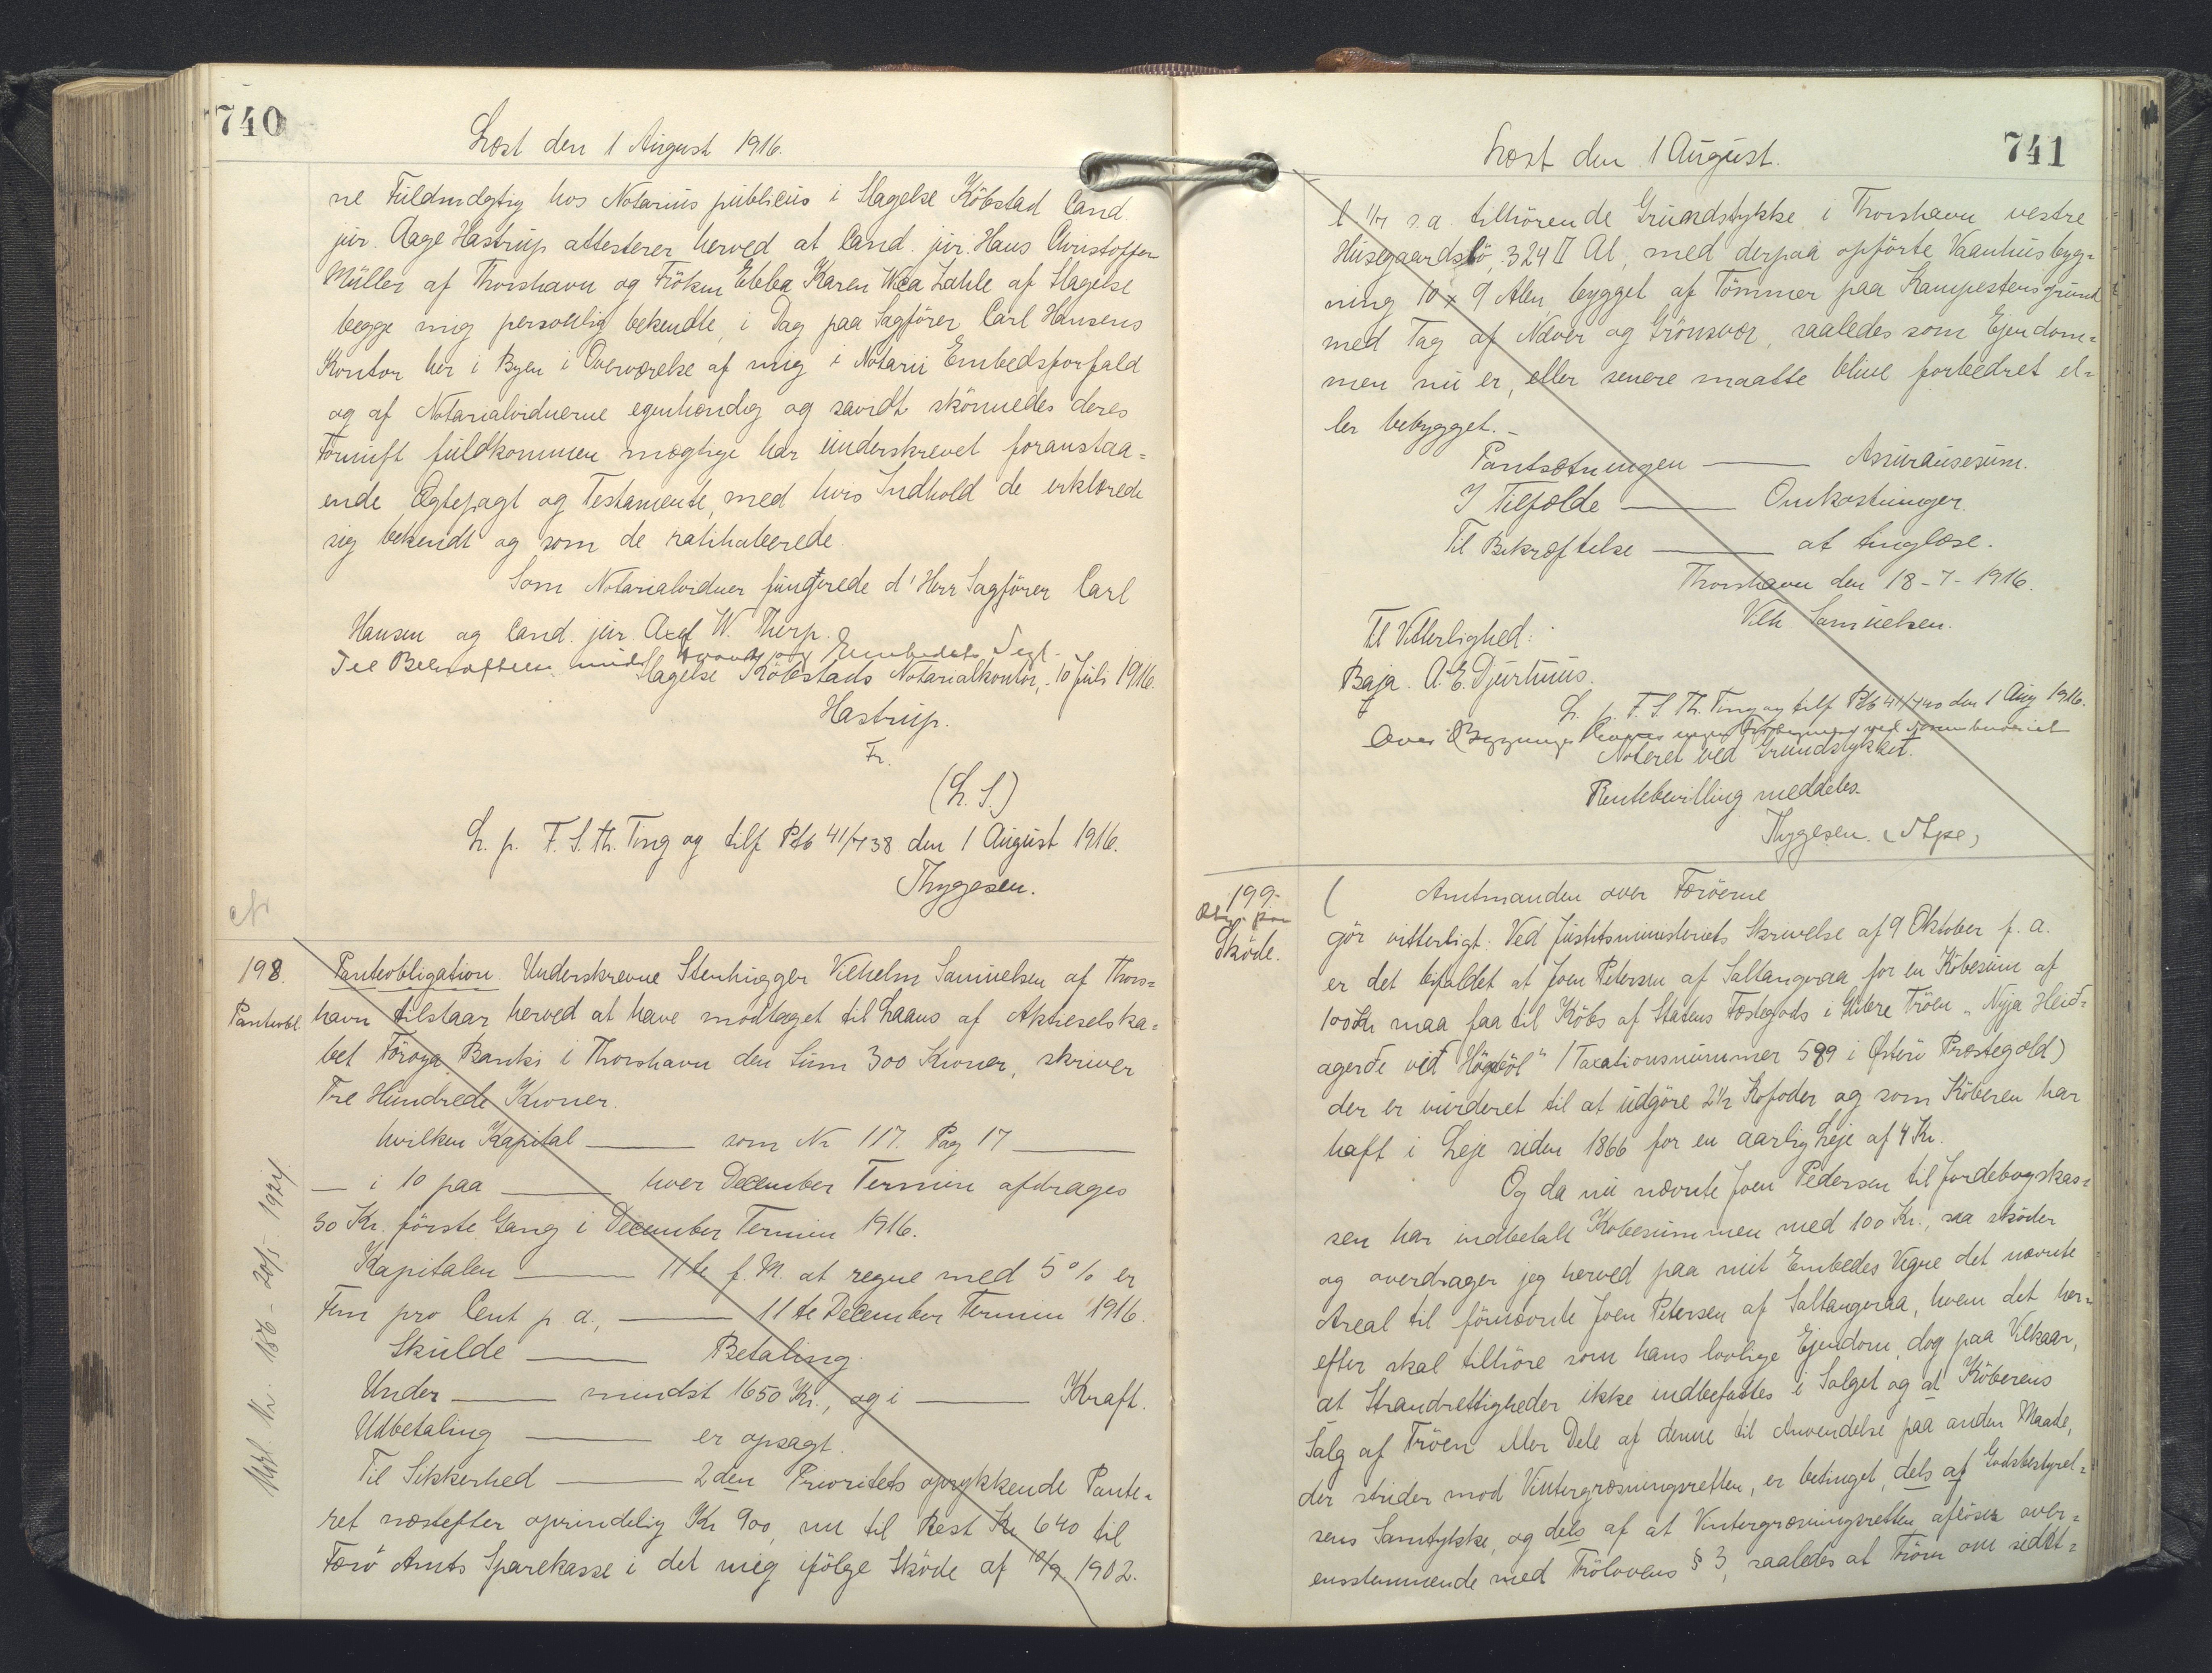 740
Læst den 1 August 1916.
ne Fuldmægtig hos Notarius publicus i Slagelse Købstad Cand.
jur. Aage Hastrup attesterer herved at Cand. jur. Hans Christoffer
Müller af Thorshavn og Frøken Ebba Karen Wea Zahle af Slagelse
begge mig personlig bekendte, i Dag paa Sagfører Carl Hansens
Kontor her i Byen i Overværelse af mig i Notarii Embedsforfald
og af Notarialvidnerne egenhændig og savidt skønnedes deres
Fornuft fuldkommen mægtige har underskrevet foranstaa=
ende Ægtepagt og Testamente, med hvis Indhold de erklærede
sig bekendt og som de ratihaberede.
Som Notarialvidner fungerede d'Herr Sagfører Carl
Hansen og Cand. jur. Axel W. Therp.
Til Bekræftelse under Haand og Embedets Segl.
Slagelse Købstads Notarialkontor, 10 Juli 1916.
Hastrup.
Fr.
(L. S.)
L. p. F. S. Th. Ting og tilf Ptb 41/738 den 1 August 1916.
Thygesen.
198.
Panteobl.
Panteobligation. Underskrevne Stenhugger Vilhelm Samuelsen af Thors=
havn tilstaar herved at have modtaget til Laans af Aktieselska=
bet Føroya Banki i Thorshavn den Sum 300 Kroner, skriver
Tre Hundrede Kroner.
hvilken Kapital ——— som Nr 117. Pag 17 ———
— i 10 paa ——— hver December Termin afdrages
30 Kr. første Gang i December Termin 1916.
Kapitalen ——— 11te f. M. at regne med 5 % er
Fem pro Cent p a., ——— 11te December Termin 1916.
Skulde ——— Betaling.
Under ——— mindst 1650 Kr., og i ——— Kraft.
Udbetaling ——— er opsagt.
Til Sikkerhed ——— 2den Prioritets oprykkende Pante=
ret næstefter oprindelig Kr 900, nu til Rest Kr 640 til
Færø Amts Sparekasse i det mig ifølge Skøde af 10/9 1902.
741
Læst den 1 August.
l 1/7 s.a. tilhørende Grundstykke i Thorshavn vestre
Husgaardslö, 324 □ Al, med derpaa opførte Vaanhusbyg=
ning 10 x 9 Alen, bygget af Tømmer paa Kampestensgrund
med Tag af Næver og Grønsvær, saaledes som Ejendom=
men nu er, eller senere maatte blive forbedret el=
ler bebygget. -
Pantsætningen ——— Assurancesum.
I Tilfælde ——— Omkostninger.
Til Bekræftelse ——— at tinglæse.
Thorshavn den 18-7-1916.
Vilh. Samuelsen.
Til Vitterlighed:
Baja. A. E. Djurhuus.
L. p. F. S. Th. Ting og tilf Ptb 41/740 den 1 Aug 1916.
Noteret ved Grundstykket.
Rentebevilling meddeles.
Thygesen.
199.
Skøde.
Amtmanden over Færøerne
gør vitterligt: Ved Justitsministeriets Skrivelse af 9 Oktober f. a.
er det bifaldet at Joen Petersen af Saltangeraa for en Købesum af
100 Kr maa faa til Købs af Statens Fæstegods i Glibre Trøen "Nyja Heið-
agerðe við Høgabøl" (Taxationsnummer 589 i Østerø Præstegæld)
der er vurderet til at udgøre 2½ Kofoder og som Køberen har
haft i Leje siden 1866 for en aarlig Leje af 4 Kr.
Og da nu nævnte Joen Pedersen til Jordebogskas=
sen har indbetalt Købesummen med 100 Kr., saa skøder
og overdrager jeg herved paa mit Embedes Vegne det nævnte
Areal til førnævnte Joen Petersen af Saltangeraa, hvem det her=
efter skal tilhøre som hans lovlige Ejendom, dog paa Vilkaar,
at Strandrettigheder ikke indbefattes i Salget og at Køberens
Salg af Trøen eller Dele af denne til Anvendelse paa anden Maade,
der strider mod Vintergræsningsretten, er betinget, dels af Godsbestyrel=
sens Samtykke, og dels af at Vintergræsningsretten afløses over=
ensstemmende med Trøloven § 3, saaledes at Trøen om sidst=